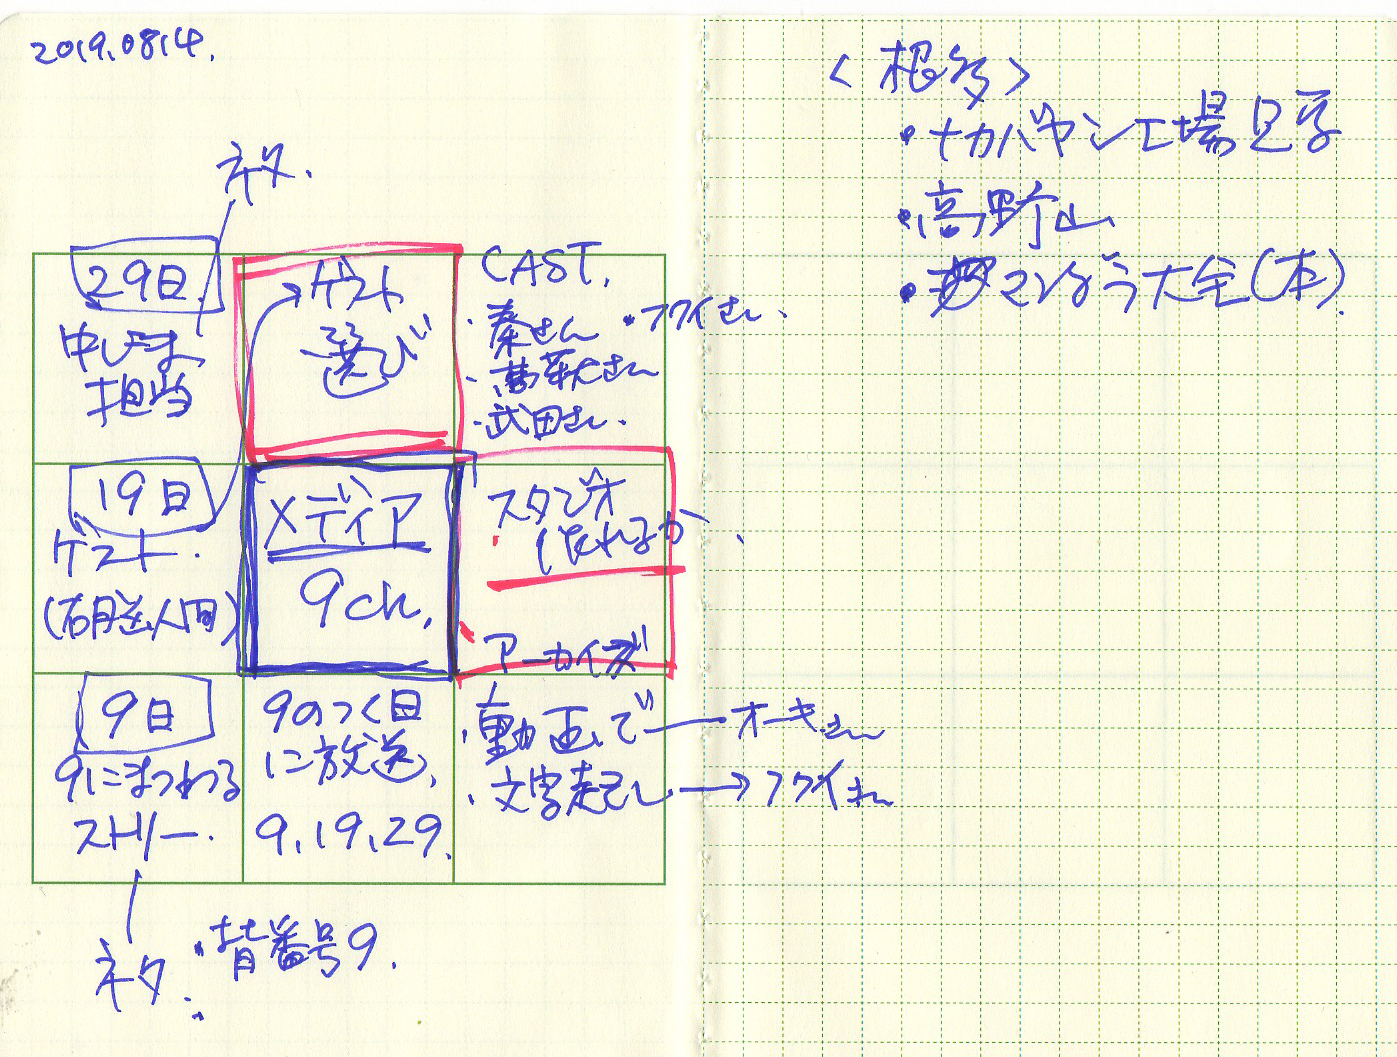 2019.0814.
ネタ.
29日.
申しま
担当
ゲスト
選び
CAST.
・秦さん ・フクイさん.
さん
・武田さん.
19日
ゲスト.
人間)
メディア
9ch.
スタジオ
(だれるか.
アーカイブ
9日
9にまつわる
ストーリー.
9のつく日
に放送.
9,19,29.
・動画で — オーキさん
・文字起こし → フクイさん
ネタ.
・背番号9.
<根多>
・ナカバヤシ工場見学
・高野山
・マンダラ大全(本)